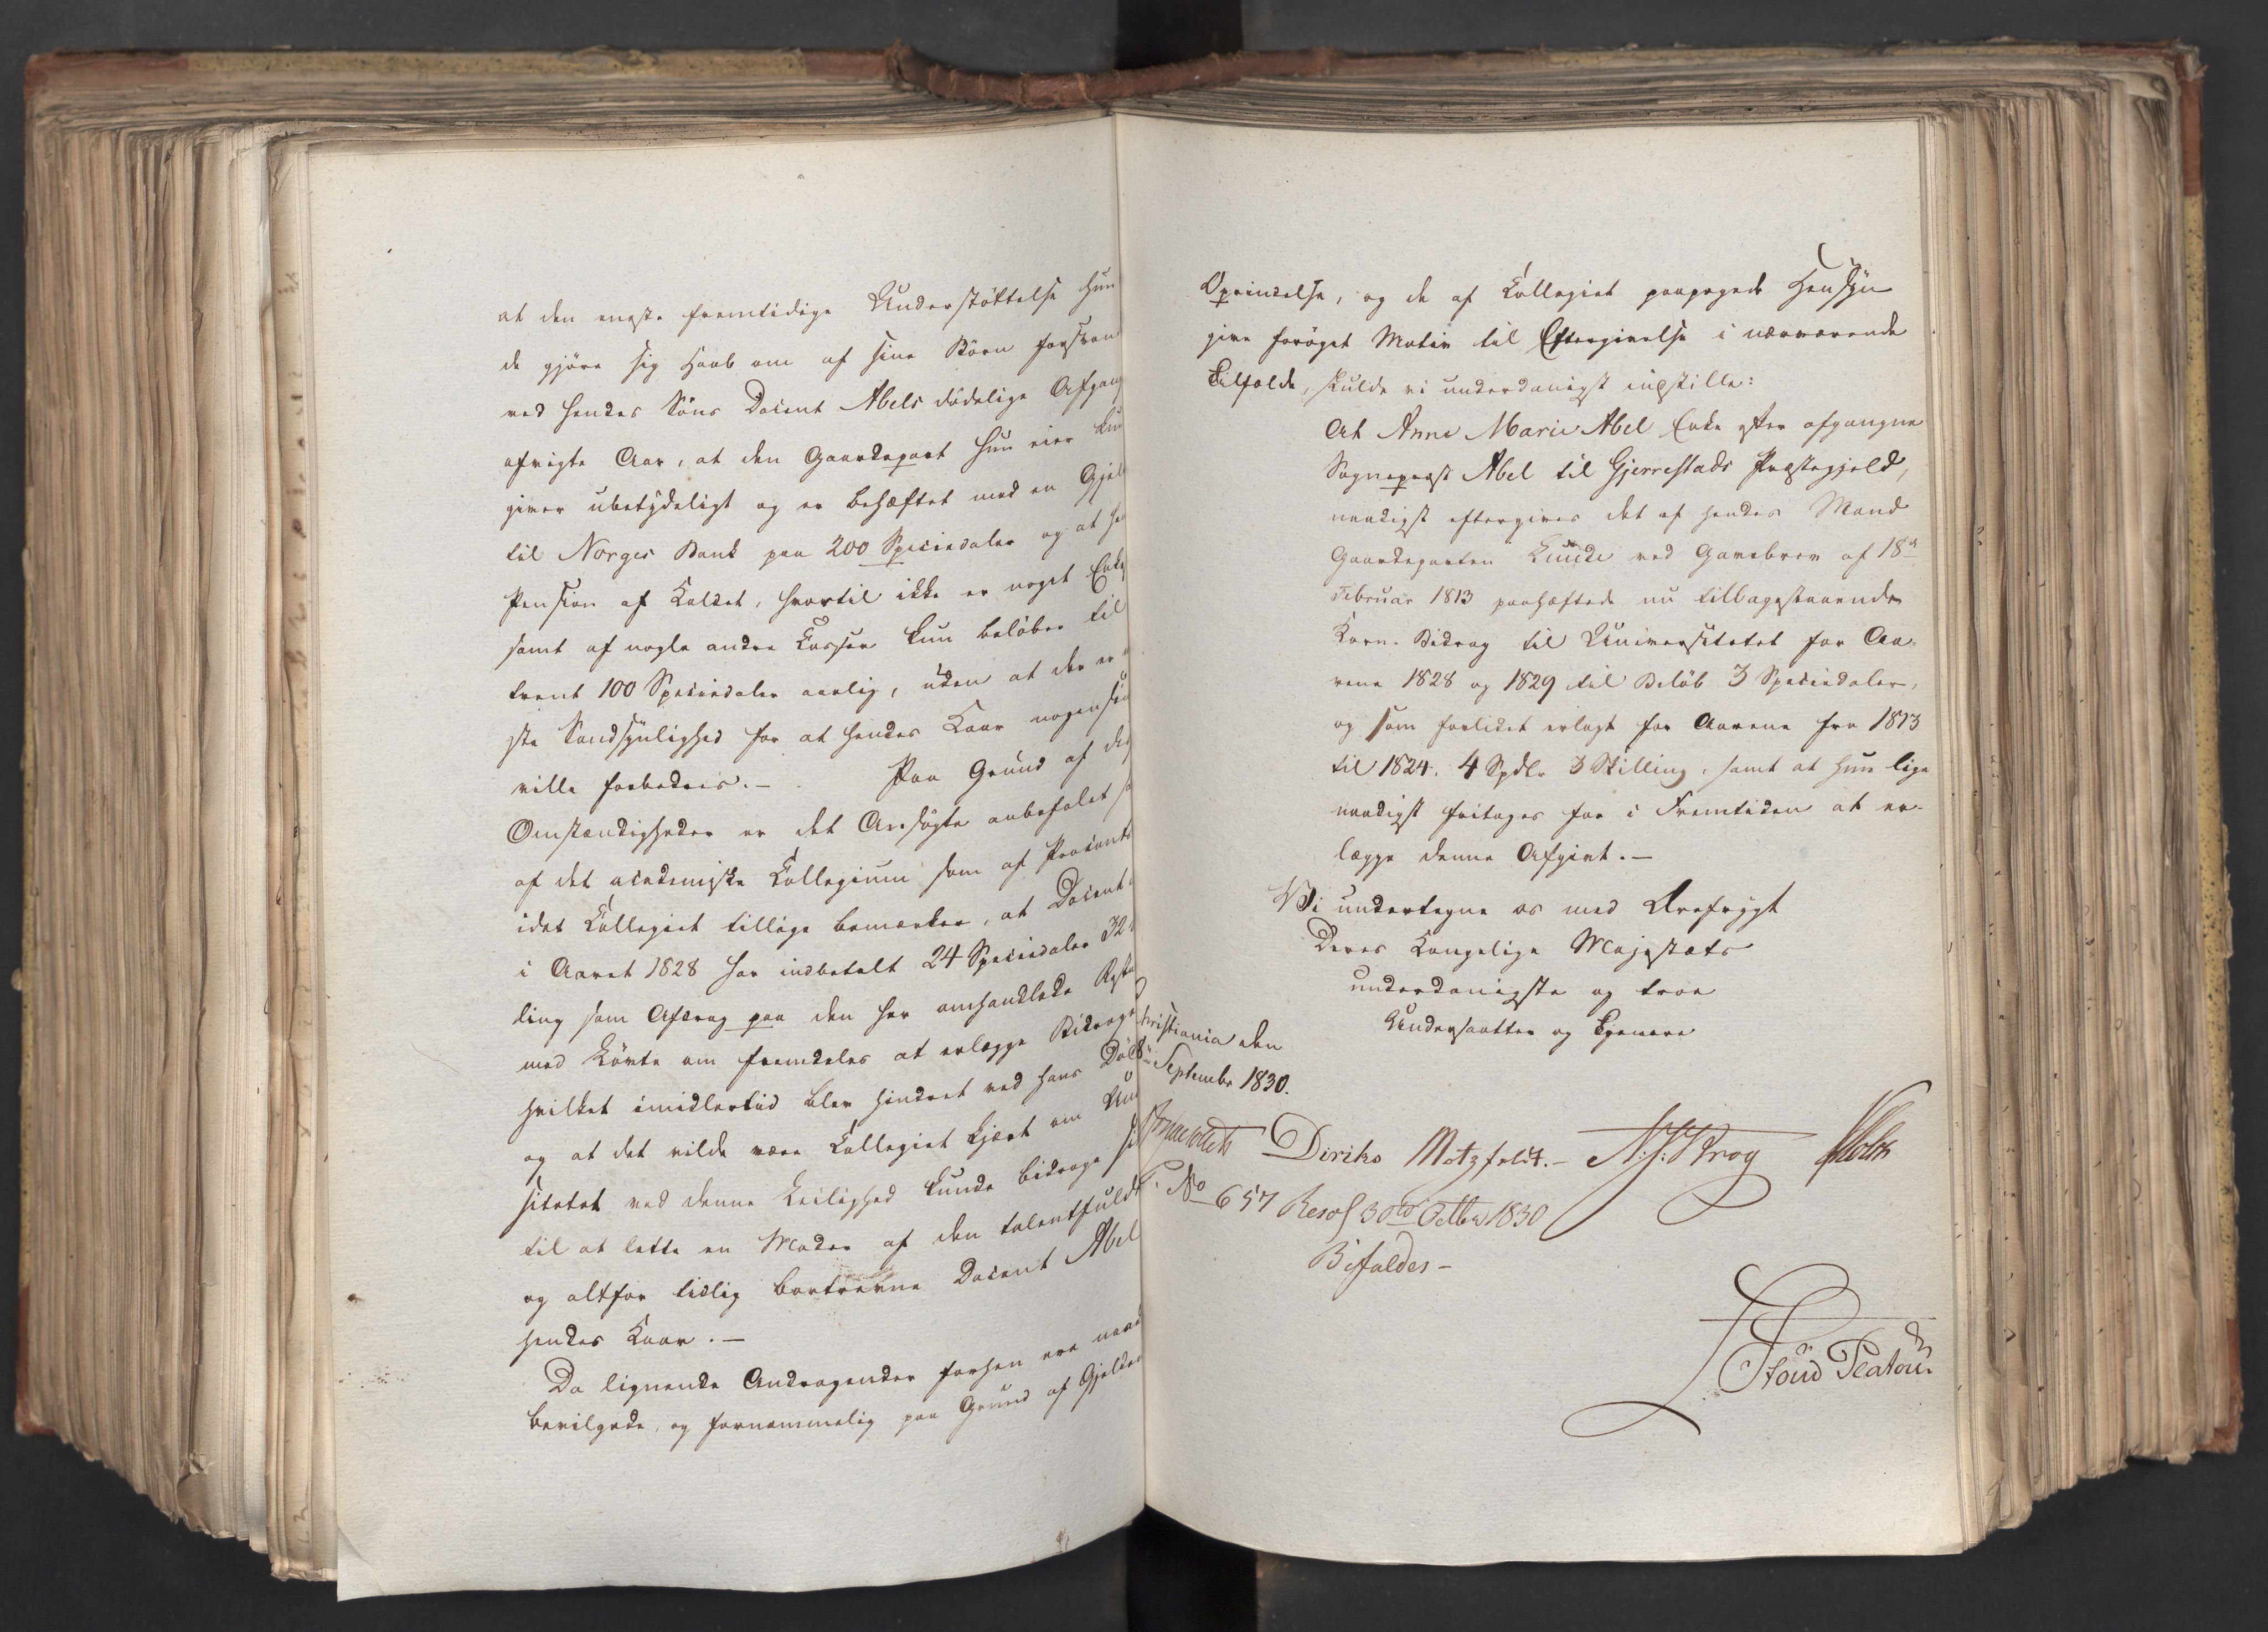 at den eneste fremtidige Understøttelse hun
de gjöre sig Haab om af sine Börn forsvan
ved hendes Söns Docent Abels dödelige Afgang
afvigte Aar, at den Gaardepart hun eier kun
giver ubetydeligt og er behæftet med en Gjel
til Norges Bank paa 200 Speciedaler og at hen
Pension af Kaldet, hvortil ikke er noget Enke
samt af nogle andre Casser kun beløber til
trent 100 Speciedaler aarlig, uden at der er
ste Sandsynlighed for at hendes Kaar nogensin
ville forbedres. — Paa Grund af dis
Omstændigheder er det Ansögte anbefalet
af det academiske Collegium som af Procants
idet Collegiet tillige bemærker, at Docent
i Aaret 1828 har indbetalt 24 Speciedaler 32
ling som Afdrag paa den her omhandlede Resta
med Løvte om fremdeles at erlægge Bidraget
hvilket imidlertid blev hindret ved hans Död
og at det vilde være Collegiet kjært om Uni
sitetet ved denne Leilighed kunde bidrage sit
til at lette en Moder af den talentfulde
og altfor tidlig bortrevne Docent Abel
hendes Kaar. —
Da lignende Andragender forhen ere naad
bevilgede, og fornemmelig paa Grund af Gjeldens
Oprindelse, og de af Collegiet paapegede Hensyn
give forøget Motiv til Eftergivelse i nærværende
Tilfælde, skulde vi underdanigst indstille:
At Anne Marie Abel Enke efter afgangne
Sogneprest Abel til Gjerrestads Præstegjeld,
naadigst eftergives det af hendes Mand
Gaardeparten Lunde ved Gavebrev af 18de
Februar 1813 paahæftede nu tilbagestaaende
Korn-Bidrag til Universitetet for Aa-
rene 1828 og 1829 til Beløb 3 Speciedaler,
og som forlidet erlagt for Aarene fra 1813
til 1824. 4 Spdlr 3 Skilling, samt at hun lige
naadigst fritages for i Fremtiden at er-
lægge denne Afgivt. —
Vi undertegne os med Ærefrygt
Deres Kongelige Majestæts
underdanigste og troe
Undersaatter og Tjenere
Christiania den
8 September 1830.
Diriks Motzfeldt. — N. J. Krog Holst
No 657 Resol 30te Octbr 1830
Bifaldes —
Stoud Platou